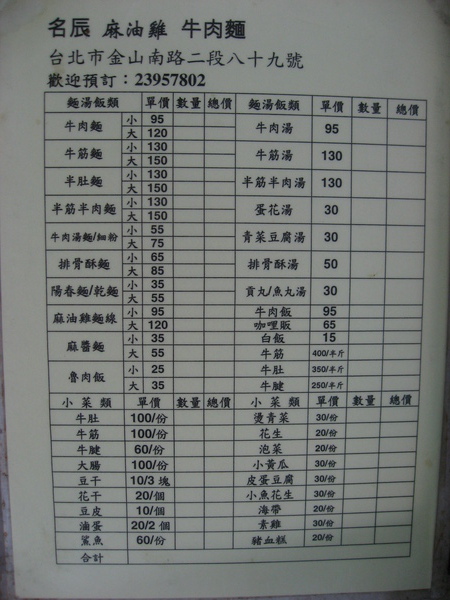 名辰 麻油雞 牛肉麵
台北市金山南路二段八十九號
歡迎預訂：23957802
麵湯飯類 單價 數量 總價 麵湯飯類 單價 數量 總價
牛肉麵 小 95 大 120 牛肉湯 95
牛筋麵 小 130 大 150 牛筋湯 130
半肚麵 小 130 大 150 半筋半肉湯 130
半筋半肉麵 小 130 大 150 蛋花湯 30
牛肉湯麵/細粉 小 55 大 75 青菜豆腐湯 30
排骨酥麵 小 65 大 85 排骨酥湯 50
陽春麵/乾麵 小 35 大 55 貢丸/魚丸湯 30
麻油雞麵線 小 95 大 120 牛肉飯 95
咖哩販 65
麻醬麵 小 35 大 55 白飯 15
牛筋 400/半斤
魯肉飯 小 25 大 35 牛肚 350/半斤
牛腱 250/半斤
小菜類 單價 數量 總價 小菜類 單價 數量 總價
牛肚 100/份 燙青菜 30/份
牛筋 100/份 花生 20/份
牛腱 60/份 泡菜 20/份
大腸 100/份 小黃瓜 30/份
豆干 10/3 塊 皮蛋豆腐 30/份
花干 20/個 小魚花生 30/份
豆皮 10/個 海帶 20/份
滷蛋 20/2 個 素雞 30/份
鯊魚 60/份 豬血糕 20/份
合計